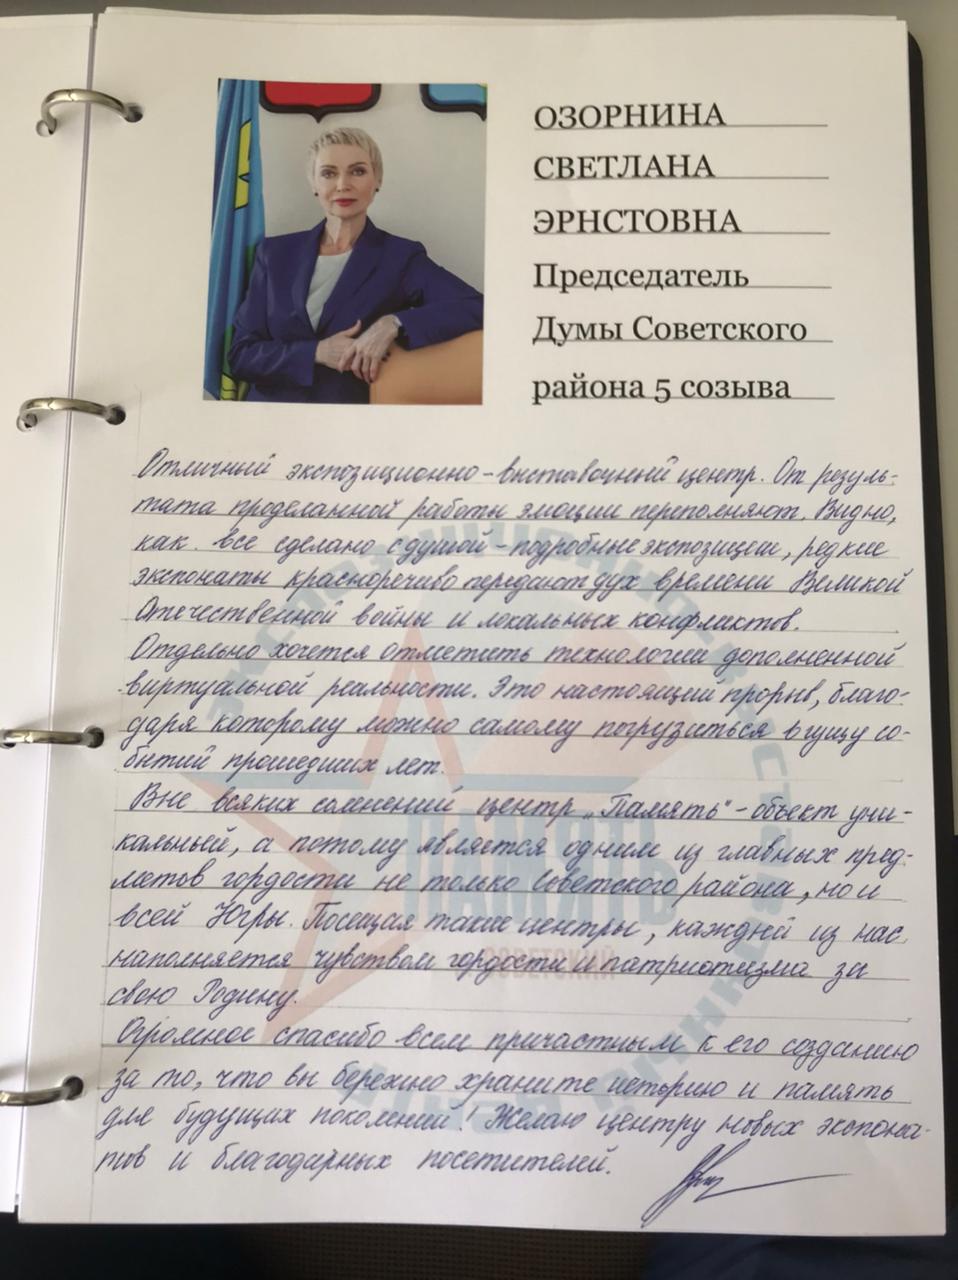 ОЗОРНИНА
СВЕТЛАНА
ЭРНСТОВНА
Председатель
Думы Советского
района 5 созыва
Отличный экспозиционно-выставочный центр. От резуль-
тата проделанной работы эмоции переполняют. Видно,
как все сделано с душой - подробные экспозиции, редкие
экспонаты красноречиво передают дух времени Великой
Отечественной войны и локальных конфликтов.
Отдельно хочется отметить технологии дополненной
виртуальной реальности. Это настоящий прорыв, благо-
даря которому можно самому погрузиться в гущу со-
бытий прошедших лет.
Вне всяких сомнений центр „Память" - объект уни-
кальный, а потому является одним из главных пред-
метов гордости не только Советского района, но и
всей Югры. Посещая такие центры, каждый из нас
наполняется чувством гордости и патриотизма за
свою Родину.
Огромное спасибо всем причастным к его созданию
за то, что вы бережно храните историю и память
для будущих поколений! Желаю центру новых экспона-
тов и благодарных посетителей.
ПАМЯТЬ
СОВЕТСКИЙ